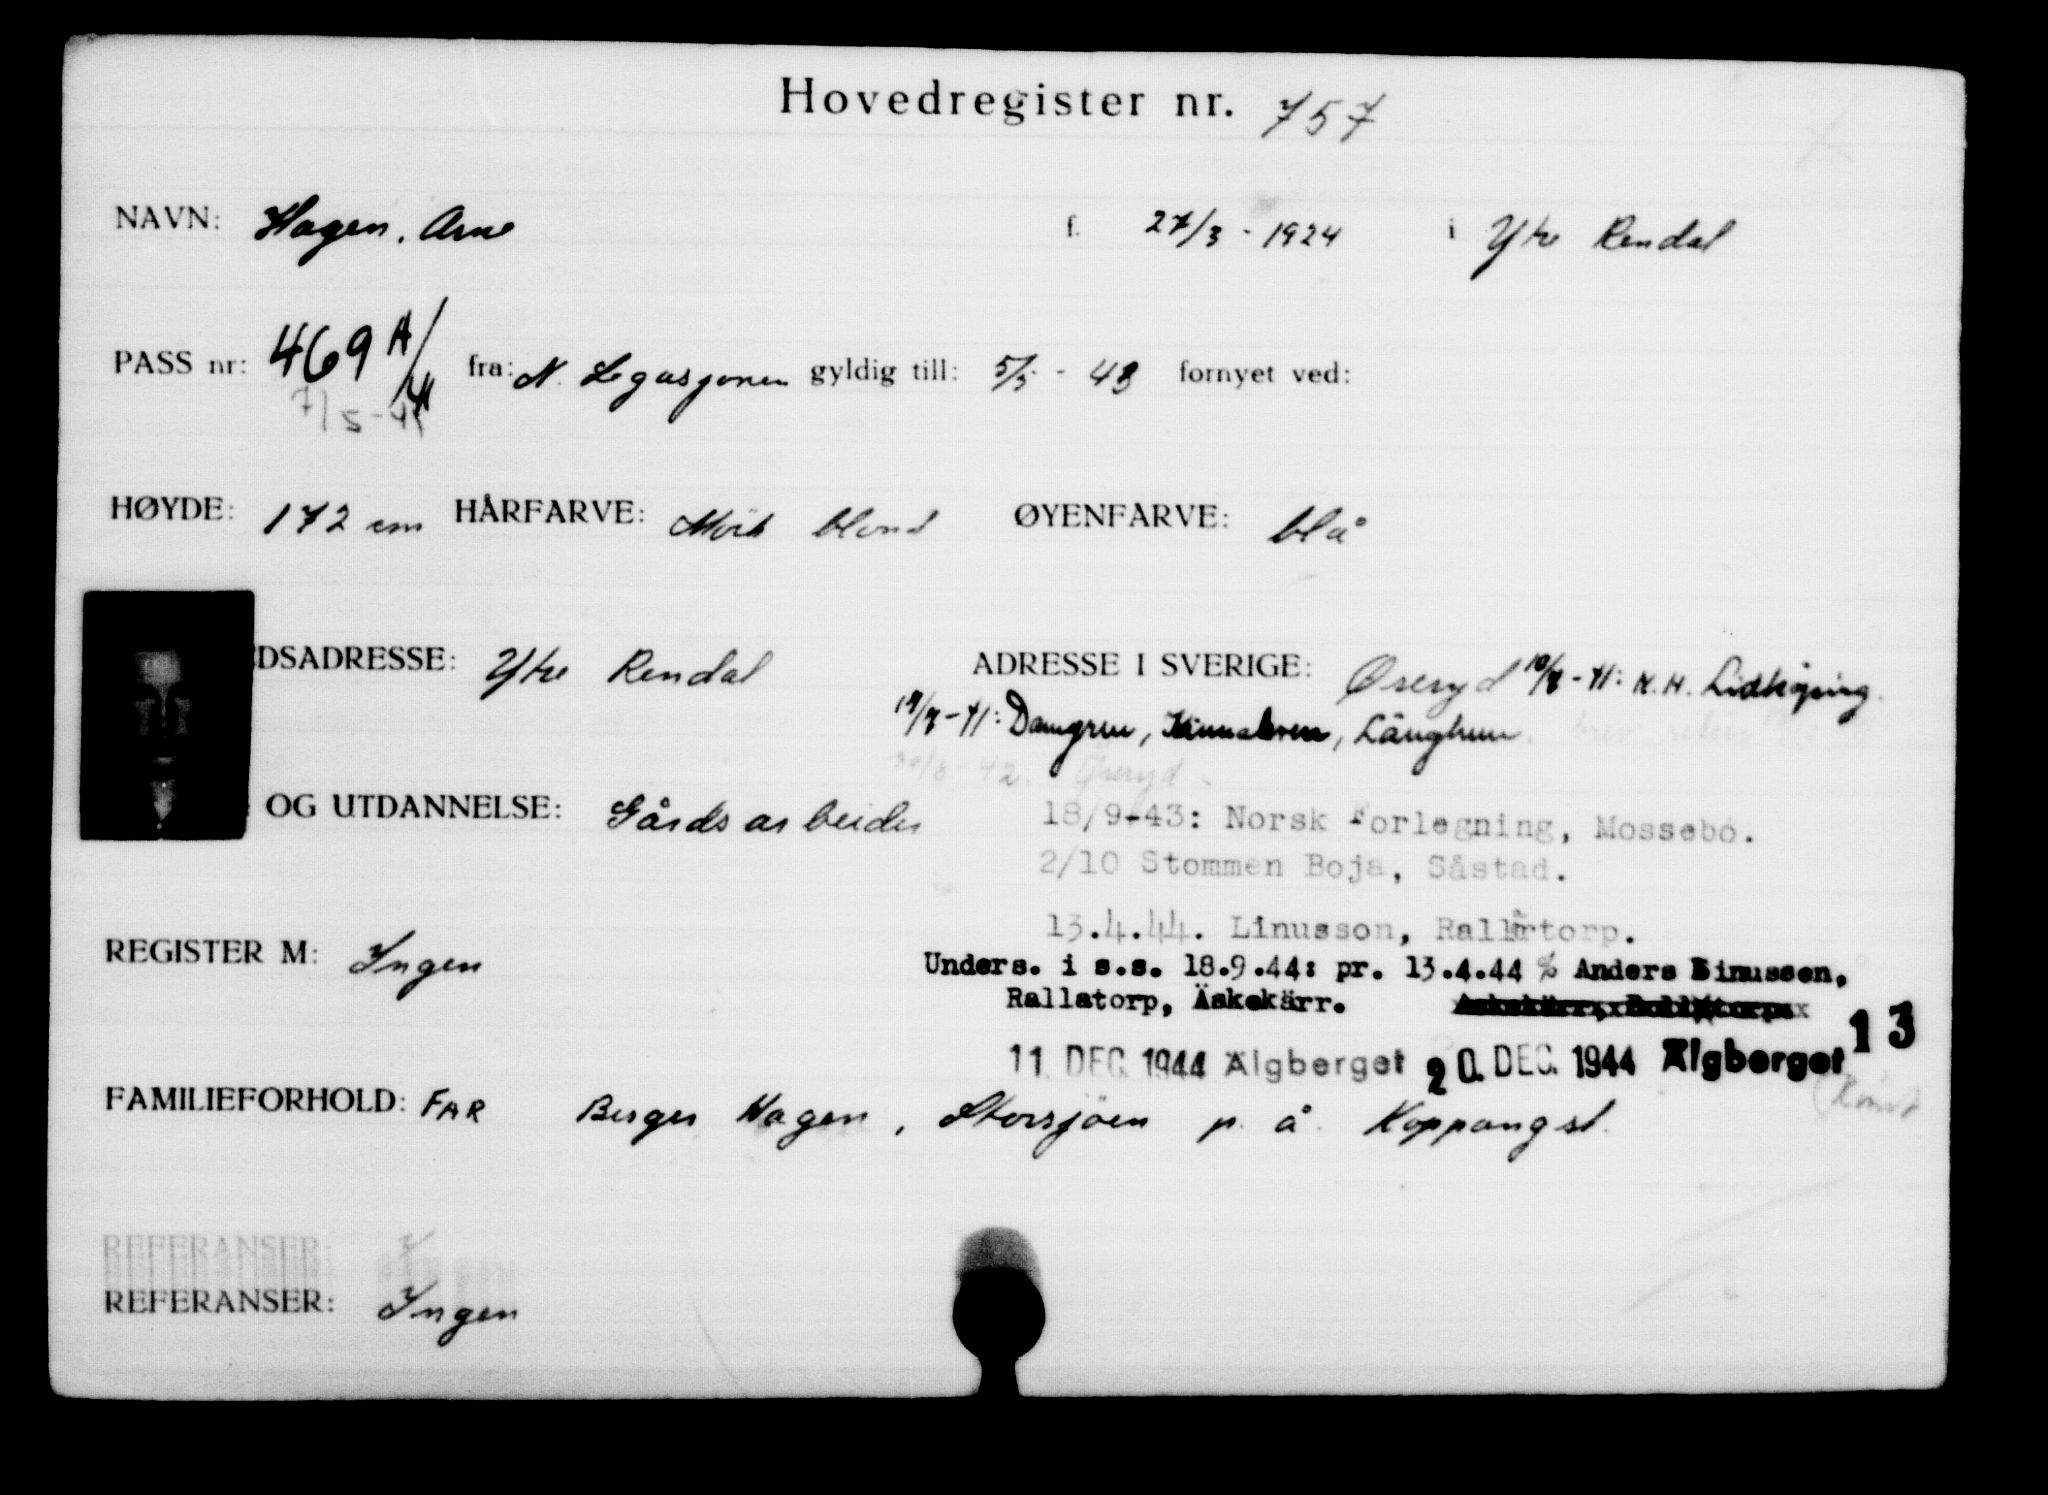 Hovedregister nr. 757
NAVN: Hagen, Arne f. 27/3 - 1924 i Ytre Rendal
PASS nr: 469 A/41 fra: N. Legasjonen gyldig till: 5/5 - 43 fornyet ved:
7/5-41
HØYDE: 172 cm HÅRFARVE: Mörk blond ØYENFARVE: blå
DSADRESSE: Ytre Rendal ADRESSE I SVERIGE: Øreryd 10/8-41: K.H. Lidköping.
19/8-41: Damgren, Kinnakven, Långhem.
-42. Öreryd.
OG UTDANNELSE: Gårdsarbeider
18/9-43: Norsk Forlegning, Mossebo.
2/10 Stommen Boja, Såstad.
13.4.44. Linusson, Rallåtorp.
REGISTER M: Ingen
Unders. i s.s. 18.9.44: pr. 13.4.44 % Anders Linussen,
Rallatorp, Äskekärr.
11 DEC. 1944 Älgberget 20. DEC. 1944 Älgberget 13
FAMILIEFORHOLD: FAR Berger Hagen, Storsjöen p. å. Koppangst.
REFERANSER: Ingen
REFERANSER: Ingen